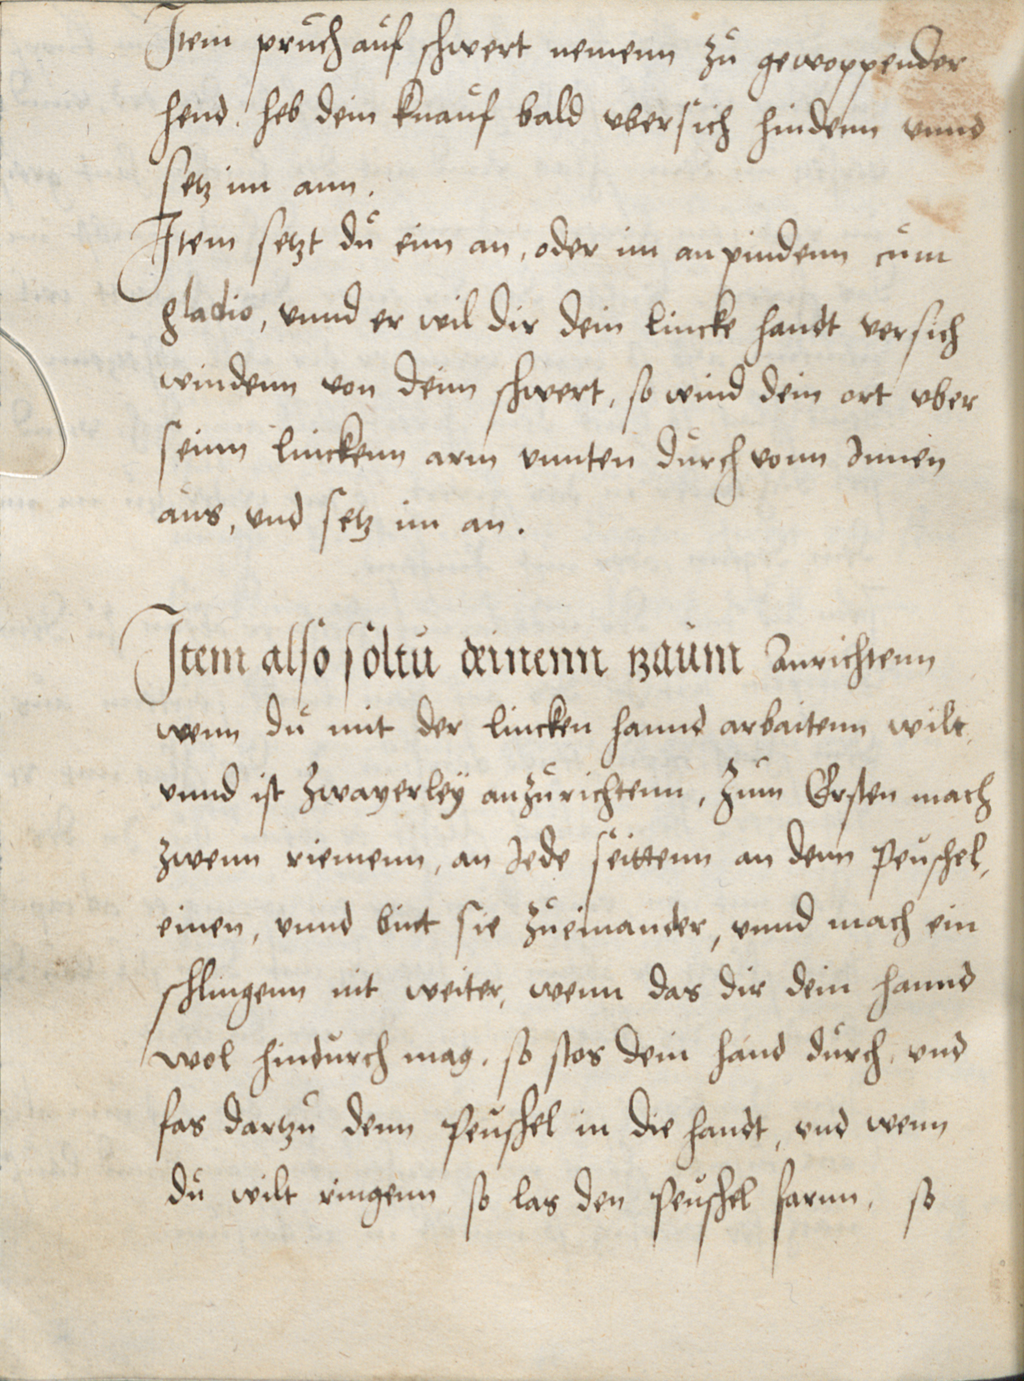 Item pruch auf schwert nemenn zu gewoppender
hend. heb dein knauf bald vbersich hindenn vnnd
setz im ann.
Item setzt du einn an, oder im anpindenn cum
gladio, vnnd er wil dir dein lincke handt versich
windenn von deinn schwert, so wind dein ort vber
seinn linckenn arm vnnten durch vonn Innen
aus, vnd setz im an.
Item also soltu deinenn zaum Anrichtenn
wenn du mit der lincken hannd arbaitenn wilt,
vnnd ist zwayerleÿ anzurichtenn, zum Ersten mach
zwenn riemenn, an Jede seittenn an denn Peuschel,
einen, vnnd bint sie zueinander, vnnd mach ein
schlingenn nit weiter, wenn das dir dein hannd
wol hindurch mag. so stos dein hand durch, vnd
fas dartzu denn Peuschel in die handt, vnd wenn
du wilt ringenn so las den Peuschel farnn, so